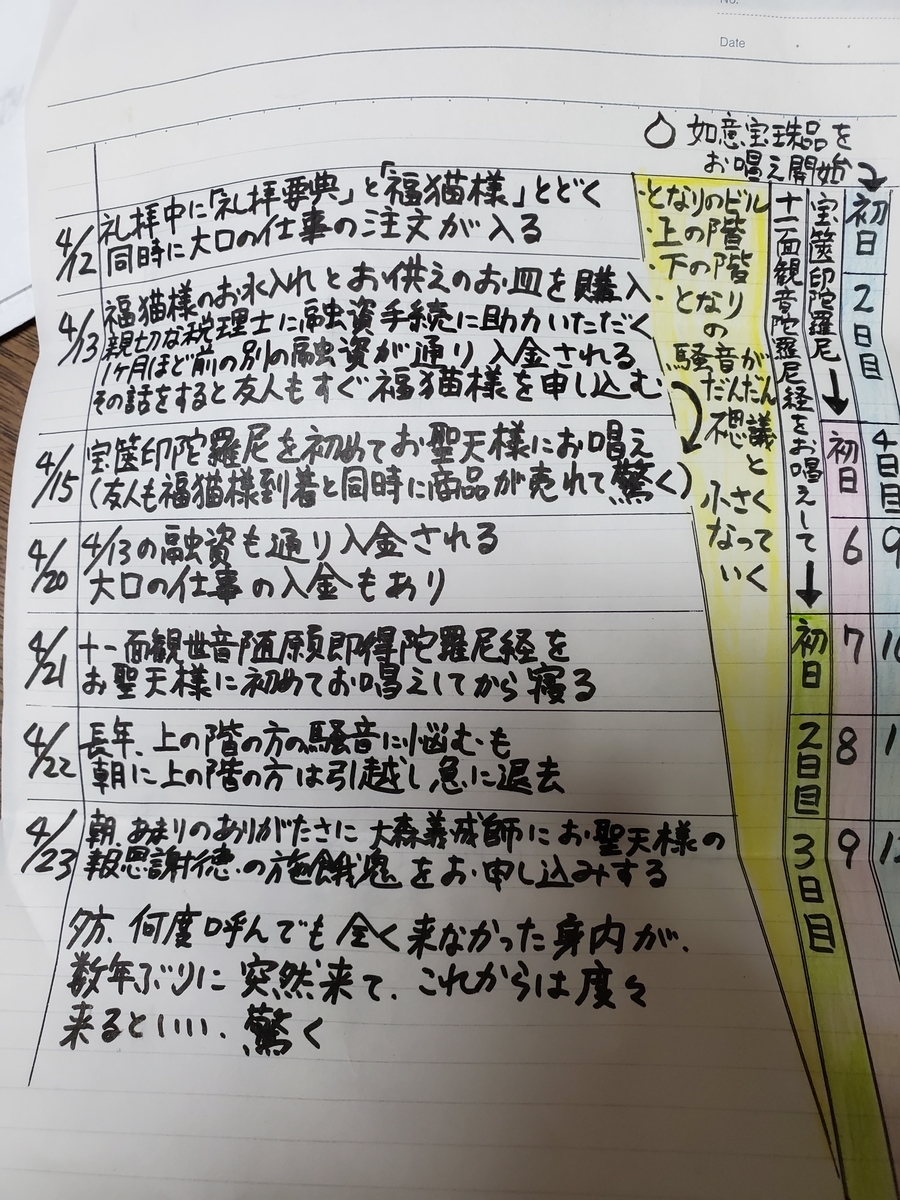 No.
Date
如意宝珠品を
お唱え開始
4/12
礼拝中に「礼拝要典」と「福猫様」とどく
同時に大口の仕事の注文が入る
4/13
福猫様のお水入れとお供えのお皿を購入
親切な税理士に融資手続に助力いただく
1ヶ月ほど前の別の融資が通り入金される
その話をすると友人もすぐ福猫様を申し込む
4/15
宝篋印陀羅尼を初めてお聖天様にお唱え
(友人も福猫様到着と同時に商品が売れて驚く)
4/20
4/13の融資も通り入金される
大口の仕事の入金もあり
4/21
十一面観世音随願即得陀羅尼経を
お聖天様に初めてお唱えしてから寝る
4/22
長年、上の階の方の騒音に悩むも
朝に上の階の方は引越し急に退去
4/23
朝、あまりのありがたさに大森義成師にお聖天様の
報恩謝徳の施餓鬼をお申し込みする
夕方、何度呼んでも全く来なかった身内が、
数年ぶりに突然来て、これからは度々
来るといい、驚く
・となりのビル
・上の階
・下の階
・となり
の
騒音が
だんだん
不思議と
小さく
なって
いく
十一面観音陀羅尼経をお唱えして
初日
2日目
3日目
宝篋印陀羅尼
初日
6
7
8
9
初日
2日目
4日目
9